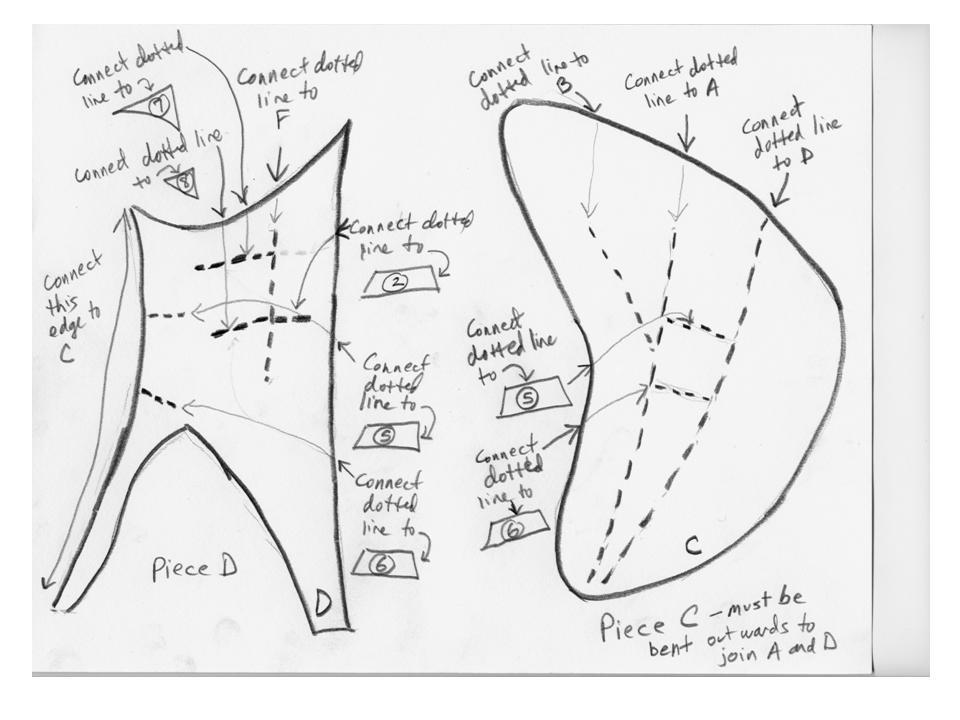 Connect dotted
line to
7
Connect dotted line
to
8
Connect dotted
line to
F
Connect
this
edge to
C
Connect dotted
line to
2
Connect
dotted
line to
5
Connect
dotted
line to
6
Piece D
D
Connect
dotted line to
B
Connect dotted
line to A
Connect
dotted line
to D
Connect
dotted line
to
5
Connect
dotted
line to
6
C
Piece C - must be
bent outwards to
join A and D